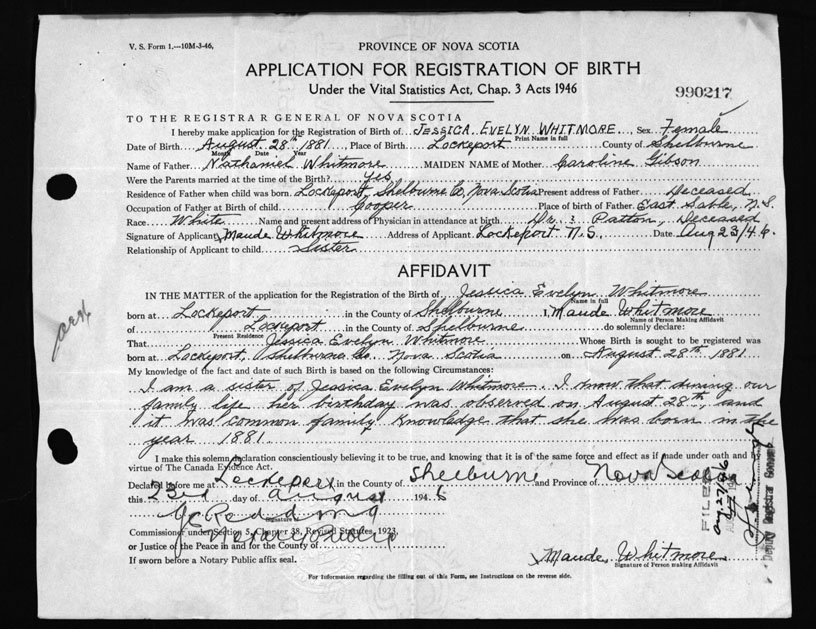 V. S. Form 1.—10M-3-46,
PROVINCE OF NOVA SCOTIA
APPLICATION FOR REGISTRATION OF BIRTH
Under the Vital Statistics Act, Chap. 3 Acts 1946
990217
TO THE REGISTRAR GENERAL OF NOVA SCOTIA
I hereby make application for the Registration of Birth of JESSICA EVELYN WHITMORE Sex Female
Print Name in full
Date of Birth August 28th 1881 Place of Birth Lockeport County of Shelburne
Month Date Year
Name of Father Nathaniel Whitmore MAIDEN NAME of Mother Caroline Gibson
Were the Parents married at the time of the Birth? Yes
Residence of Father when child was born Lockeport, Shelburne Co, Nova Scotia Present address of Father Deceased
Occupation of Father at Birth of child Cooper Place of birth of Father East Sable, N.S.
Race White Name and present address of Physician in attendance at birth Dr. Patton, Deceased
Signature of Applicant Maude Whitmore Address of Applicant Lockeport N.S. Date Aug 23/46
Relationship of Applicant to child Sister
AFFIDAVIT
IN THE MATTER of the application for the Registration of the Birth of Jessica Evelyn Whitmore
Name in full
born at Lockeport in the County of Shelburne I, Maude Whitmore
Name of Person Making Affidavit
of Lockeport in the County of Shelburne do solemnly declare:
Present Residence
That Jessica Evelyn Whitmore Whose Birth is sought to be registered was
born at Lockeport, Shelburne Co. Nova Scotia on August 28th 1881
My knowledge of the fact and date of such Birth is based on the following Circumstances:
I am a sister of Jessica Evelyn Whitmore. I know that during our
family life her birthday was observed on August 28th, and
it was common family knowledge that she was born in the
year 1881.
I make this solemn declaration conscientiously believing it to be true, and knowing that it is of the same force and effect as if made under oath and by
virtue of The Canada Evidence Act.
Declared before me at Lockeport in the County of Shelburne and Province of Nova Scotia
this 23rd day of August 1946
Signature
Notary Public
Commissioner under Section 5, Chapter 38, Revised Statutes, 1923
or Justice of the Peace in and for the County of
If sworn before a Notary Public affix seal.
Maude Whitmore
Signature of Person making Affidavit
For Information regarding the filling out of this Form, see Instructions on the reverse side.
FILED
Aug 27/46
Deputy Registrar General